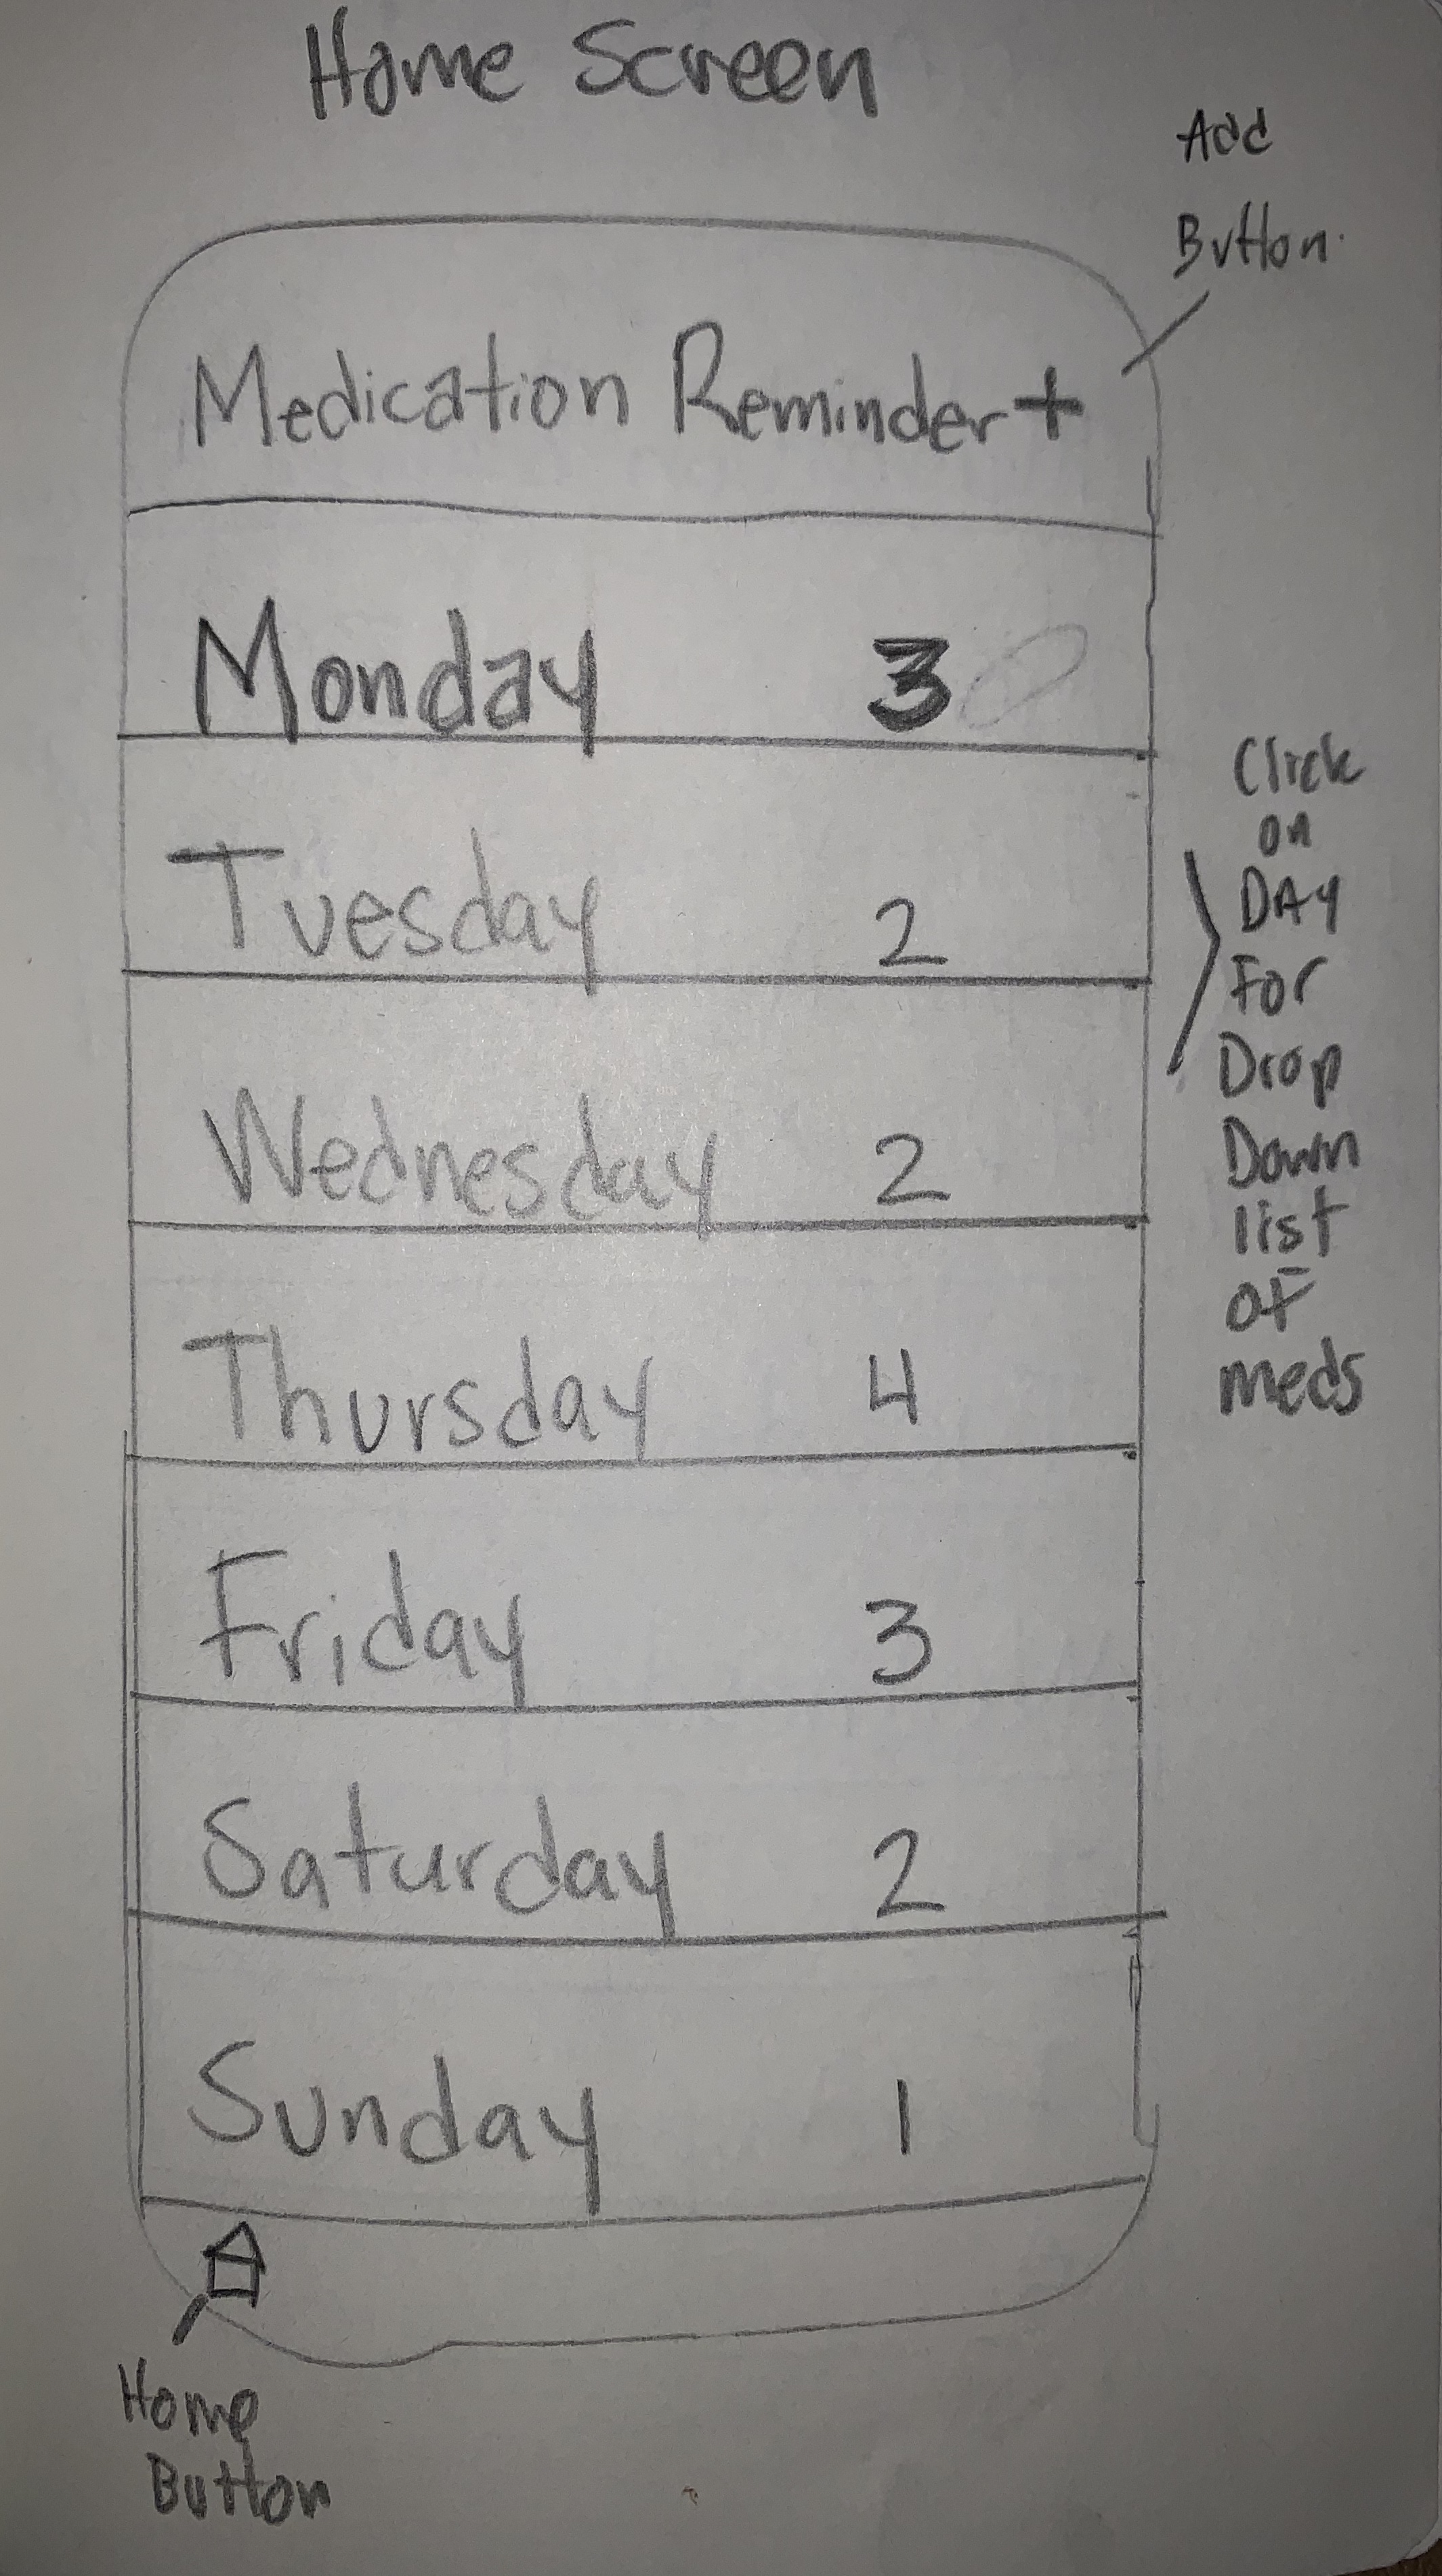 Home Screen
Add
Button.
Medication Reminder +
Monday 3
Tuesday 2
Wednesday 2
Thursday 4
Friday 3
Saturday 2
Sunday 1
Click
on
DAY
For
Drop
Down
list
of
meds
Home
Button